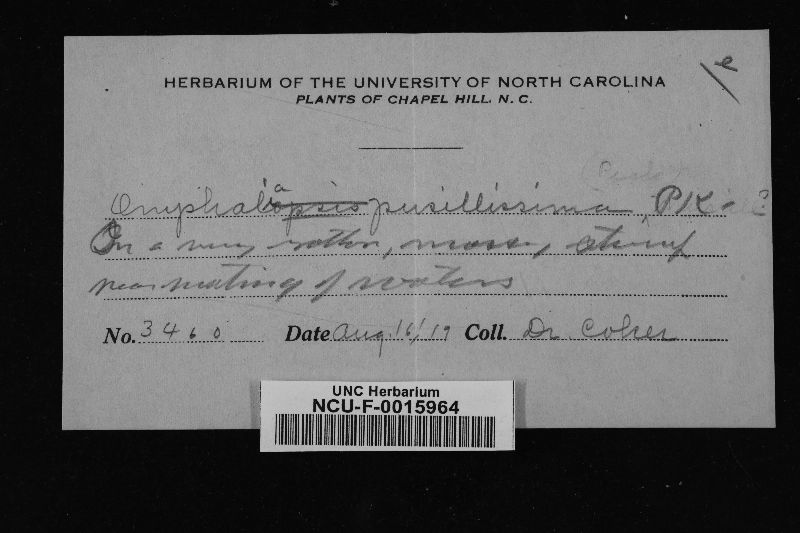 e
HERBARIUM OF THE UNIVERSITY OF NORTH CAROLINA
PLANTS OF CHAPEL HILL, N. C.
Omphalia opsis pusillissima, PK
On a very rotten, mossy stump
near meeting of waters
No. 3460 Date Aug 16/19 Coll. Dr. Coker
UNC Herbarium
NCU-F-0015964